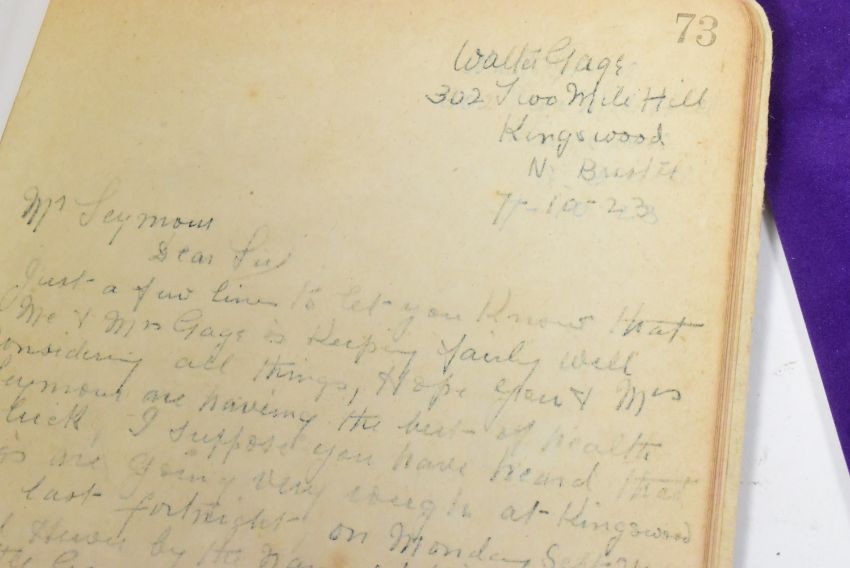 73
Walter Gage
302 Two Mile Hill
Kingswood
N. Bristol
Mr Seymour
Dear Sir
Just a few lines to let you know that
Me & Mrs Gage is keeping fairly well
considering all things, Hope you & Mrs
Seymour are having the best of health
luck, I suppose you have heard that
are going very rough at Kingswood
last fortnight, on Monday Sept
by the